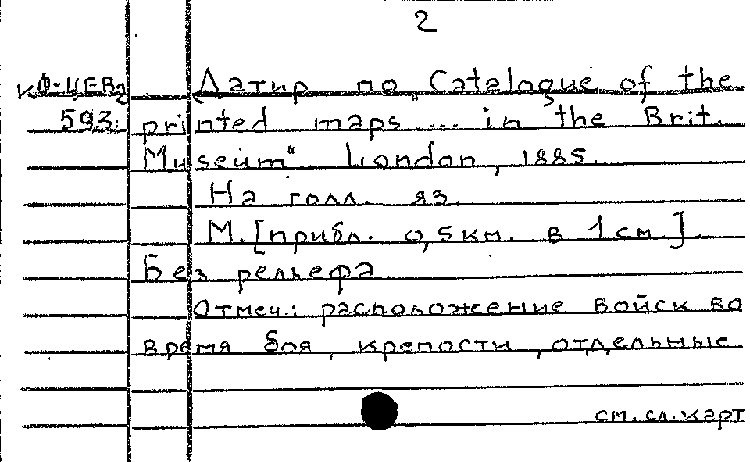 2
Датир. по „Catalogue of the
593. printed maps ... in the Brit.
Museum“ London, 1885.
На голл. яз.
М. [прибл. 0,5 км. в 1 см.]
Без рельефа
Отмеч.: расположение войск во
время боя, крепости, отдельные
см. сл. карт